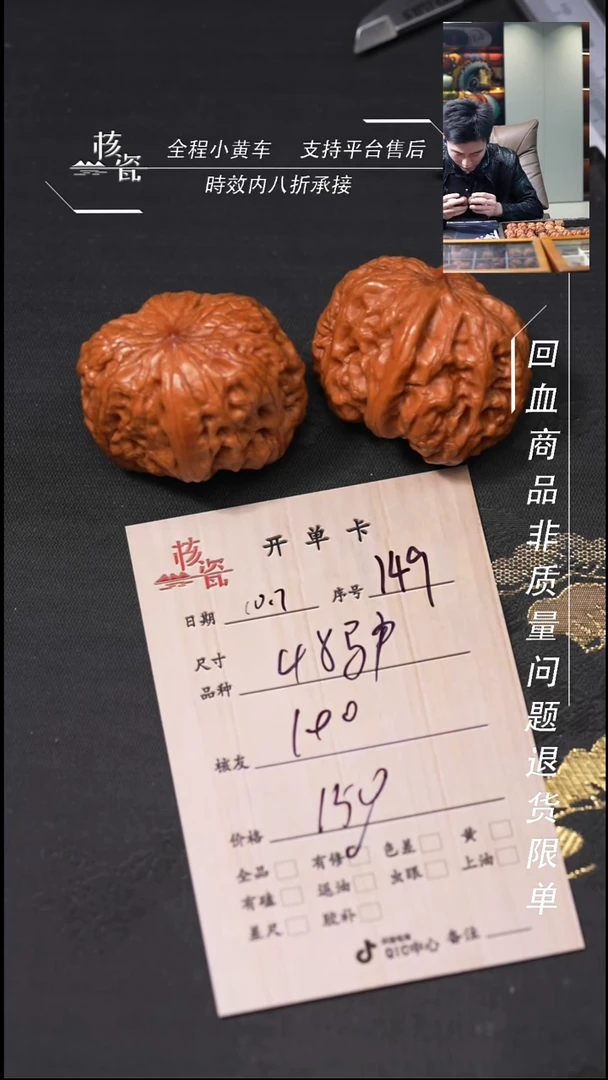 核瓷
全程小黄车 支持平台售后
時效内八折承接
回血商品非质量问题退货限单
核瓷
开单卡
日期 10.7 序号 149
尺寸 48
品种
核友
价格
全品 有修 色差 黄
有磕 返油 虫眼 上油
差尺 胶补
QIC中心 备注